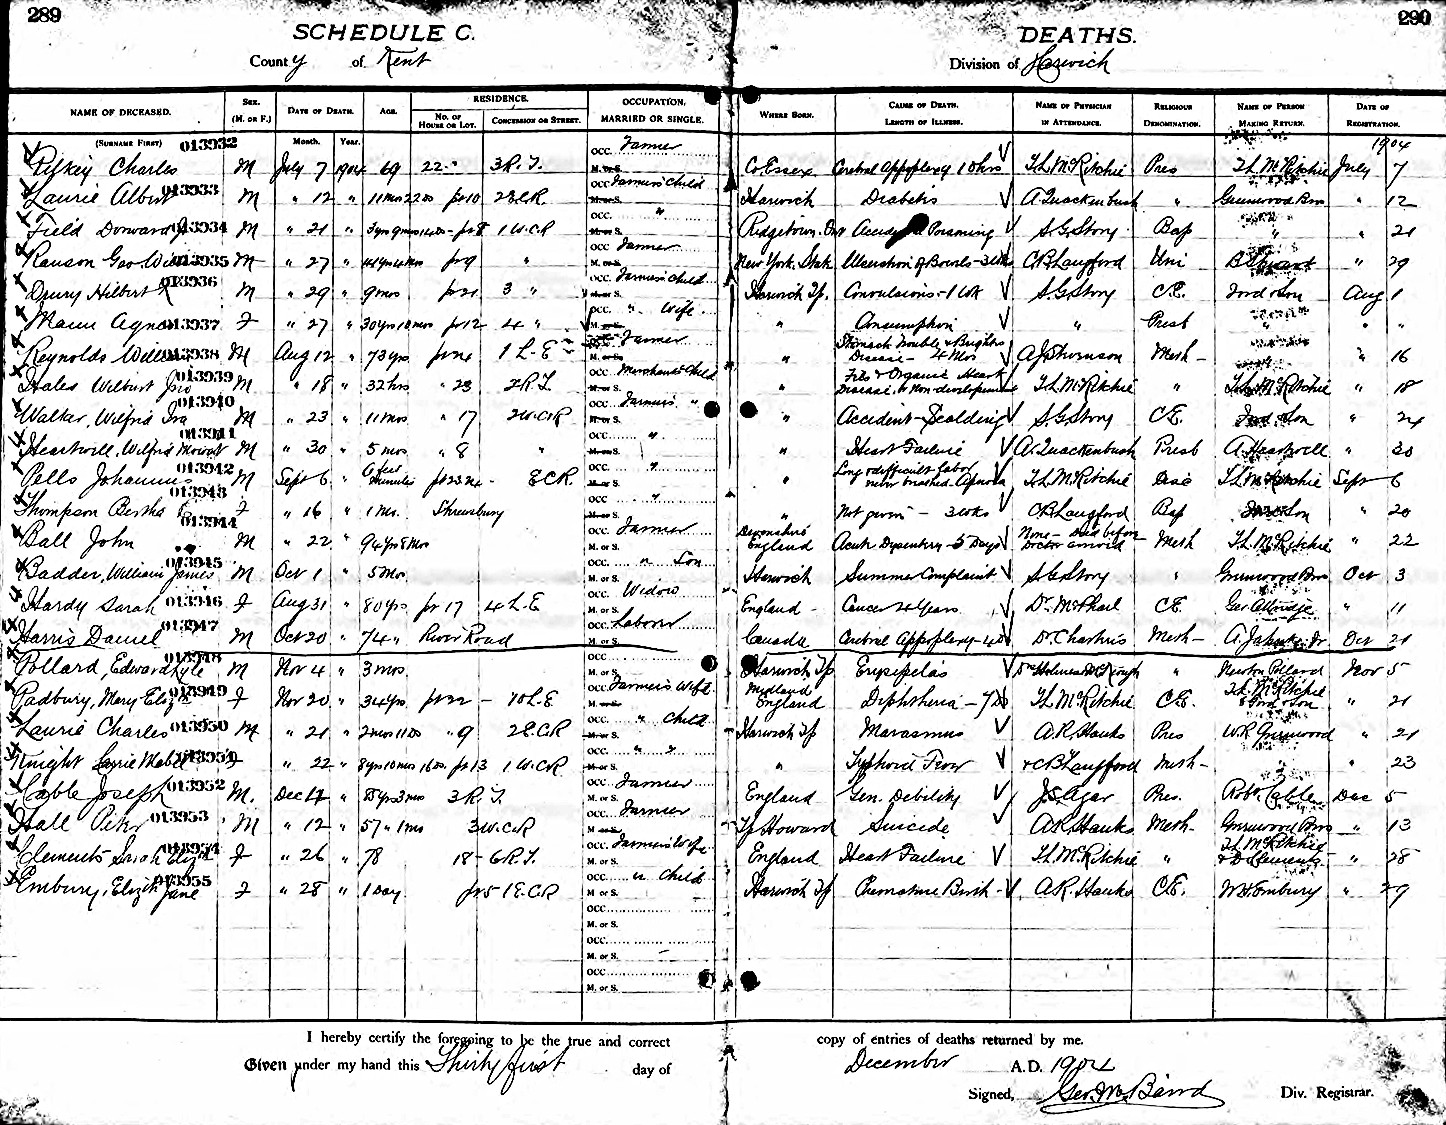 289
290
SCHEDULE C.
DEATHS.
County of Kent
Division of Harwich
NAME OF DECEASED. SEX. (M. OR F.) DATE OF DEATH. AGE. RESIDENCE. NO. OF HOUSE OR LOT. CONCESSION OR STREET. OCCUPATION. MARRIED OR SINGLE. WHERE BORN. CAUSE OF DEATH. LENGTH OF ILLNESS. NAME OF PHYSICIAN IN ATTENDANCE. RELIGIOUS DENOMINATION. NAME OF PERSON MAKING RETURN. DATE OF REGISTRATION.
(SURNAME FIRST) Month. Year. 1904
013932 Charles M July 7 1904 69 22 3 R.T. Farmer Co Essex 10 hrs T.L. McRitchie Pres T.L. McRitchie July 7
013933 Laurie Albert M " 12 " 11 mos 22 ds pt 10 2 E.C.R. Farmers Child Harwich Diabetis A. Quackenbush " Greenwood Bros " 12
013934 Field M " 21 " pt 8 1 W.C.R " Ridgetown. Ont Poisoning S.G. Story Bap " " 21
013935 Ranson Geo. M " 27 " pt 9 " Farmer New York. State of Bowels - 3 wks C.B. Langford Uni B. Stewart " 29
013936 Drury Hilbert M " 29 " 9 mos pt 21 3 " Farmers Child Harwich Tp. Convulsions - 1 wk S.G. Story C.E. Ford & Son Aug 1
013937 Mann Agnes F " 27 " 30 yrs 10 mos pt 12 4 " " Wife " Consumption " Presb " " "
013938 Reynolds M Aug 12 " 73 yrs pt 24 1 L-E Farmer " Stomach Trouble & Brights Disease - 4 mos Meth - " 16
013939 Hales Wilbert M " 18 " 32 hrs " 23 2 R.T. Merchants Child " Fits & Organic Heart Disease, & Non-development T.L. McRitchie " T.L. McRitchie " 18
013940 Walker, Wilfrid Ira M " 23 " 11 mos " 17 2 W.C.R Farmers " " Accident - Scalding S.G. Story C.E. Ford & Son " 24
013941 Heartwell, Wilfrid Mowat M " 30 " 5 mos " 8 " " " Heart Failure A. Quackenbush Presb A. Heartwell " 30
013942 Pells Johannus M Sept 6 " pt 23 24 - E.C.R. " " Long & difficult labor T.L. McRitchie Disc T.L. McRitchie Sept 6
013943 Thompson Bertha F " 16 " 1 mo. Shrewsbury " " Not given - 3 wks C.B. Langford Bap Ford & Son " 20
013944 Ball John M " 22 " 94 yrs 8 mos Farmer Devonshire England Acute Dysentery - 5 Days None - Died before Doctor arrived Meth T.L. McRitchie " 22
013945 Badder, William James M Oct 1 " 5 mos " Son Harwich Summer Complaint S.G. Story " Greenwood Bros Oct 3
013946 Hardy Sarah F Aug 31 " 80 yrs pt 17 4 L-E Widow England - Cancer 4 Years Dr. McPhail C.E. Geo. " 11
013947 Harris Daniel M Oct 20 " 74 " River Road Laborer Canada Meth - Oct 21
013948 Pollard, Edward Lyle M Nov 4 " 3 mos. Harwich Tp Erysipelas " Newton Pollard Nov 5
013949 Padbury, Mary Eliz F Nov 20 " 34 yrs pt 22 - 10 L-E Farmers Wife Midland England Diphtheria - 7 Ds T.L. McRitchie C.E. T.L. McRitchie & Ford & Son " 21
013950 Laurie Charles M " 21 " 2 mos 11 Ds " 9 2 E.C.R " Child Harwich Tp Marasmus A.R. Hanks Pres W.R. Greenwood " 21
Knight Mabel F " 22 " 8 yrs 10 mos 16 ds. pt 13 1 W.C.R " " " Typhoid Fever C.B. Langford Meth - " " 23
013952 Cable Joseph M. Dec 4 " 3 R.T. Farmer England Gen. Debility J.S. Agar Pres. Robt. Cable Dec 5
013953 Hall Peter M " 12 " 57 " 1 mo 3 W.C.R Farmer Tp Howard Suicide A.R. Hanks Meth - Greenwood Bros " 13
013954 Clements Sarah Eliz F " 26 " 78 18 - 6 R.T. Farmers Wife England Heart Failure T.L. McRitchie " T.L. McRitchie & D. Clements - " 28
013955 Embury, Elizth Jane F " 28 " 1 Day pt 5 1 E.C.R " Child Harwich Tp Premature Birth - A.R. Hanks C.E. Embury " 29
I hereby certify the foregoing to be the true and correct copy of entries of deaths returned by me.
Given under my hand this Thirty first day of December A.D. 1904
Signed, Geo. M. Baird Div. Registrar.